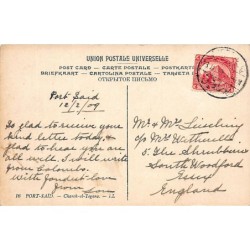 UNION POSTALE UNIVERSELLE
POST CARD — CARTE POSTALE — POSTKARTE
BRIEFKAART — CARTOLINA POSTALE — TARJETA
ОТКРЫТОЕ ПИСЬМО
Port Said
12/2/09
So glad to receive your
kind letter today, &
glad to hear you are
all well. I will write
from Colombo.
With fondest love
from Son
Mr & Mrs
c/o Mrs
5 The Shrubberies
South Woodford
Essex
England
10 PORT-SAID. - LL